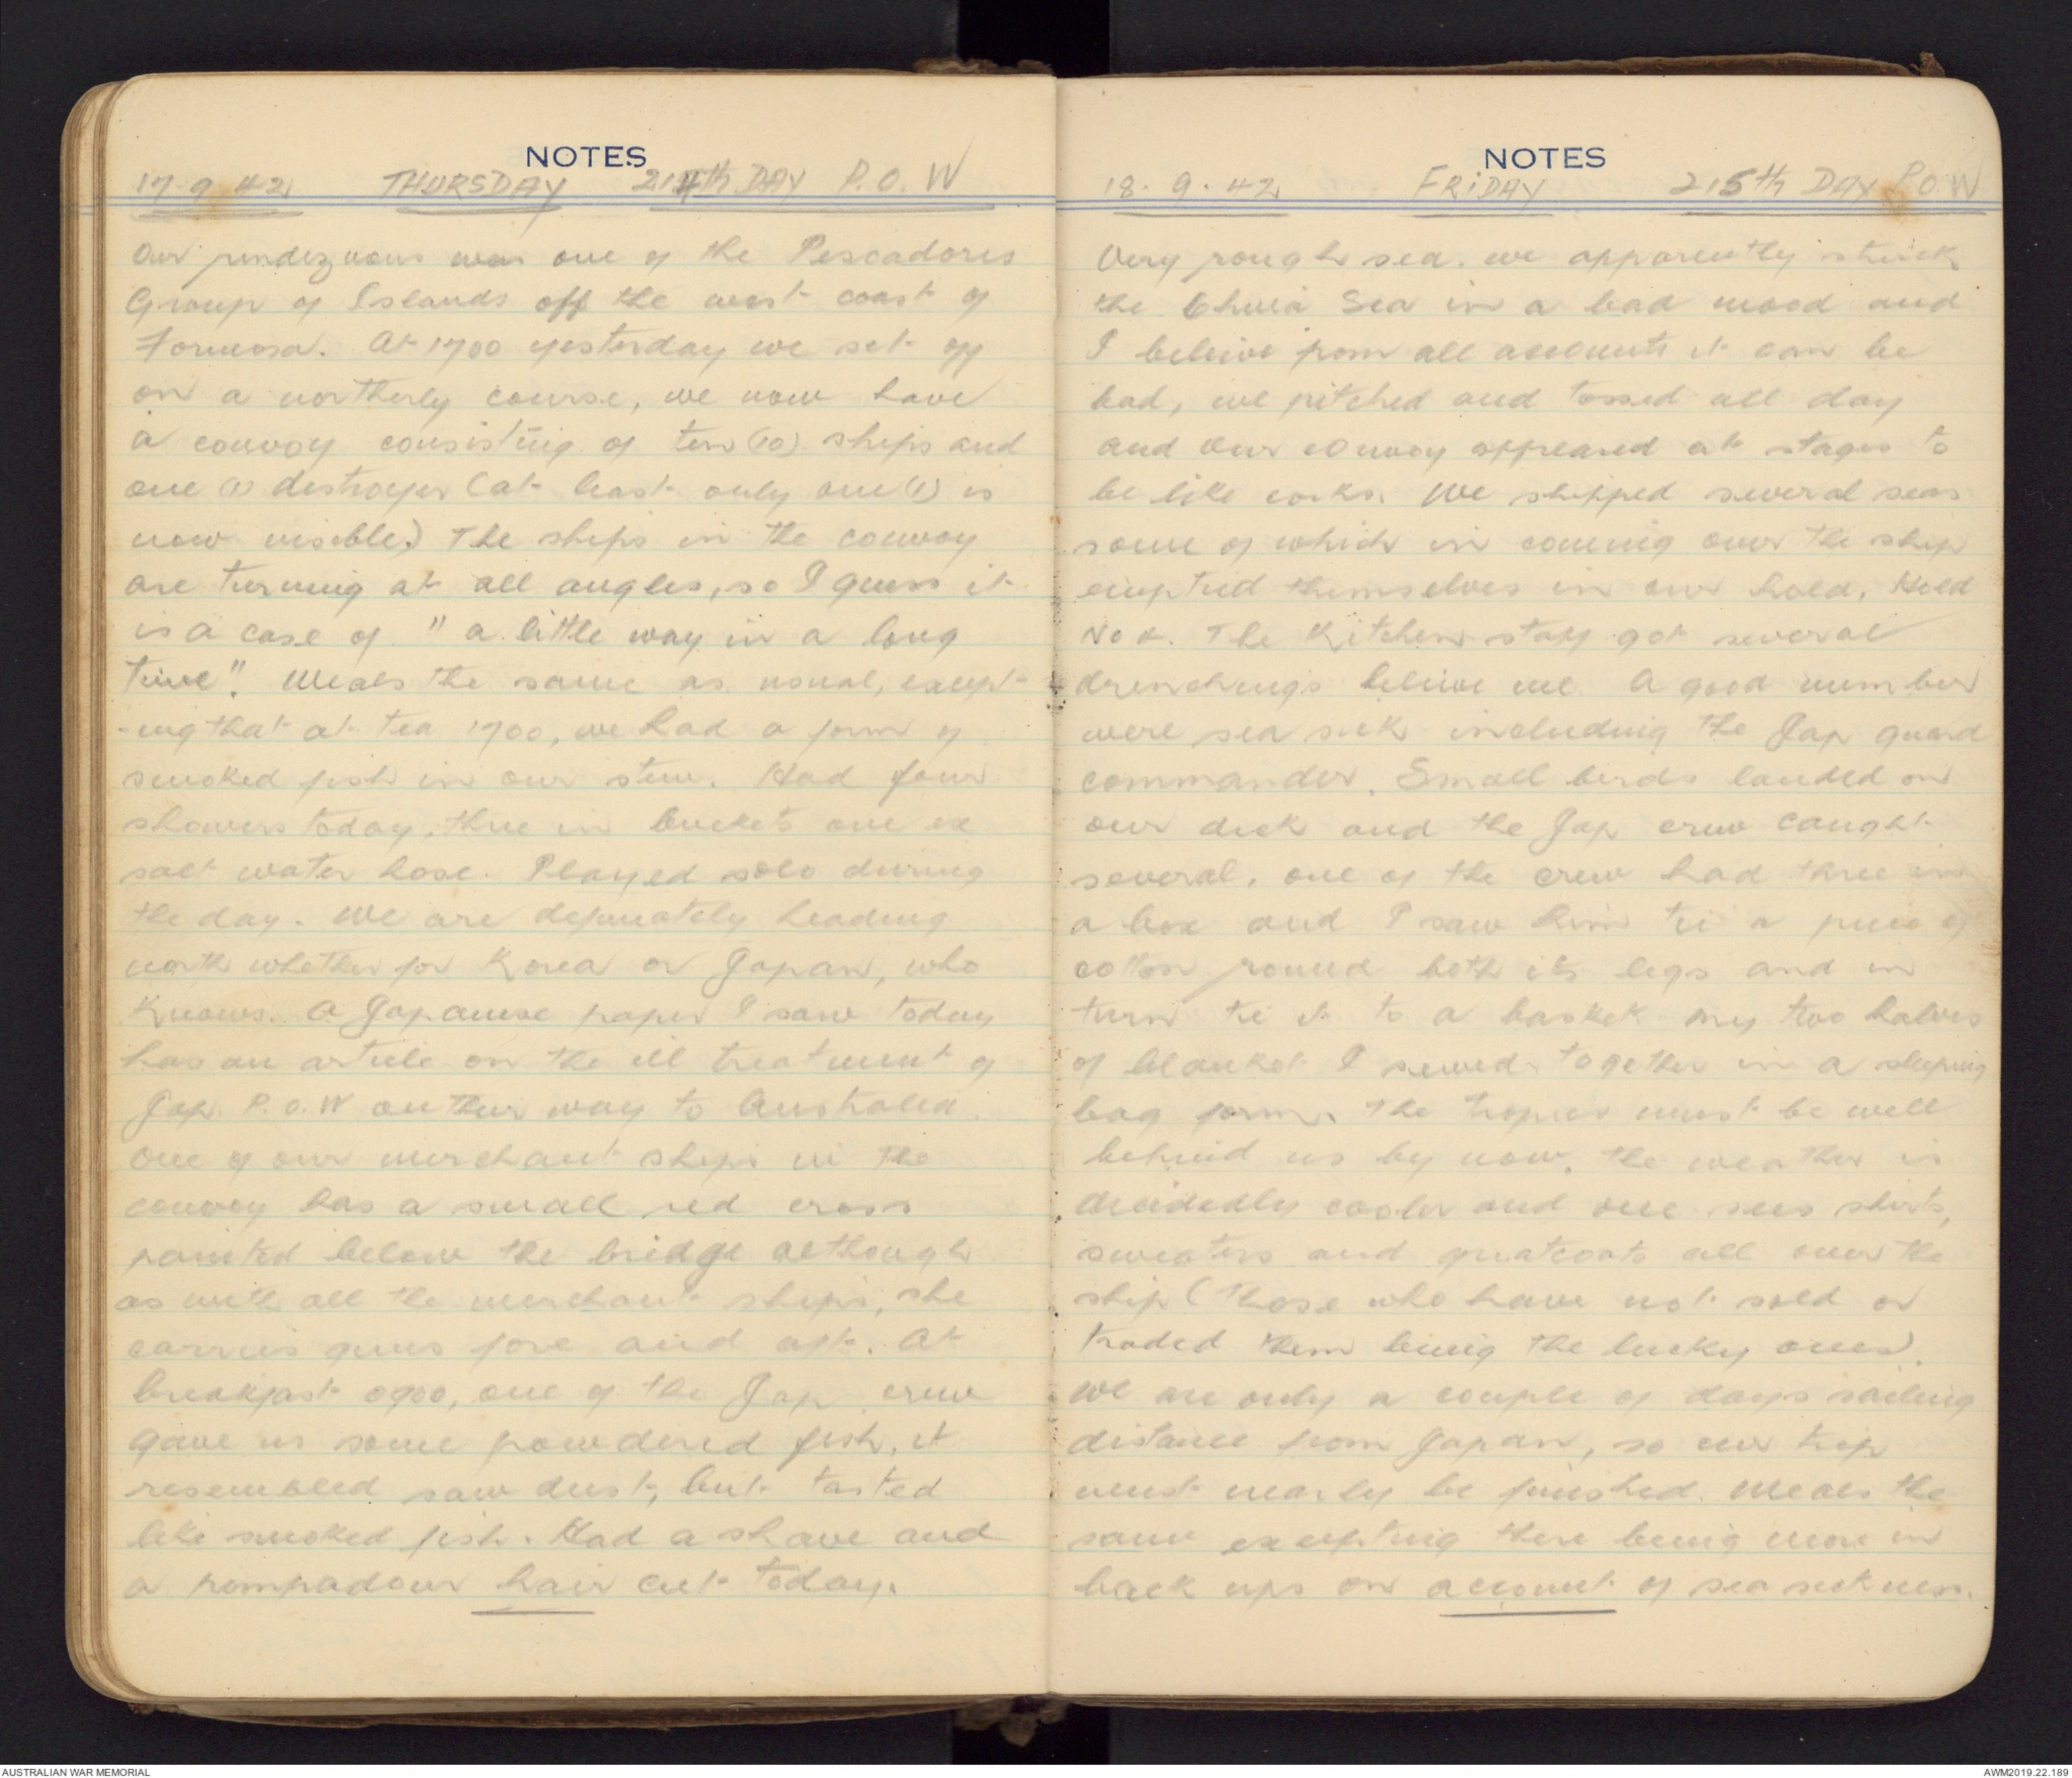 NOTES
17.9.42 THURSDAY 214th DAY P.O.W
Our rendezvous was one of the Pescadores
Group of Islands off the west coast of
Formosa. At 1700 yesterday we set off
on a northerly course, we now have
a convoy consisting of ten (10) ships and
one (1) destroyer (at least only one (1) is
now visible.) The ships in the convoy
are turning at all angles, so I guess it
is a case of "a little way in a long
time". Meals the same as usual, except-
-ing that at tea 1700, we had a form of
smoked fish in our stew. Had four
showers today, three in buckets one ex
salt water hose. Played solo during
the day. We are definately heading
north whether for Korea or Japan, who
knows. A Japanese paper I saw today
has an article on the ill treatment of
Jap. P.O.W on their way to Australia.
One of our merchant ships in the
convoy has a small red cross
painted below the bridge although
as with all the merchant ships, she
carries guns fore and aft. At
breakfast 0900, one of the Jap crew
gave us some powdered fish, it
resembled saw dust, but tasted
like smoked fish. Had a shave and
a pompadour hair cut today.
NOTES
18.9.42 FRiDAY 215th DAY P.O.W
Very rough sea. we apparently struck
the China Sea in a bad mood and
I beleive from all accounts it can be
bad, we pitched and tossed all day
and our convoy appeared at stages to
be like corks. We shipped several seas
some of which in coming over the ship
emptied themselves in our hold, Hold
No 2. The Kitchen staff got several
drenchings beleive me. A good number
were sea sick including the Jap guard
commander. Small birds landed on
our deck and the Jap crew caught
several, one of the crew had three in
a box and I saw him tie a piece of
cotton round both its legs and in
turn tie it to a basket. My two halves
of blanket I sewed together in a sleeping
bag form. The tropics must be well
behind us by now, the weather is
decidedly cooler and one sees shirts,
sweaters and greatcoats all over the
ship (Those who have not sold or
traded them being the lucky ones).
We are only a couple of days sailing
distance from Japan, so our trip
must nearly be finished. Meals the
same excepting there being more in
back ups on account of sea sickness.
AUSTRALIAN WAR MEMORIAL
AWM2019.22.189